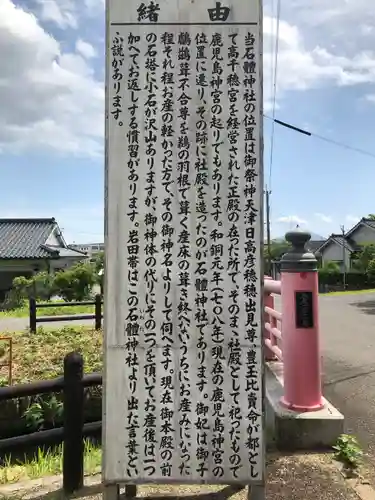 由緒
当石體神社の位置は御祭神天津日高彦火火出見尊が都とし
て高千穂宮を経営された正殿の在った所で、そのまゝ社殿として祀ったもので
鹿児島神宮の起りでもあります。和銅元年(七〇八)に現在の鹿児島神宮の
位置に遷り、その跡に社殿を造ったのが石體神社であります。御妃は御子
鸕鷀葺不合尊を鵜の羽根で葺く産床の葺き終へないうちに御安産になった
程それ程お産の軽かった方で、その御神名よりして伺へます。現在御本殿の前
の石塔に小石が沢山ありますが御神体の代りにその一つを頂いてお産後は一つ
加へてお返しする慣習があります。岩田帯はこの石體神社より出た言葉と
ふ説があります。